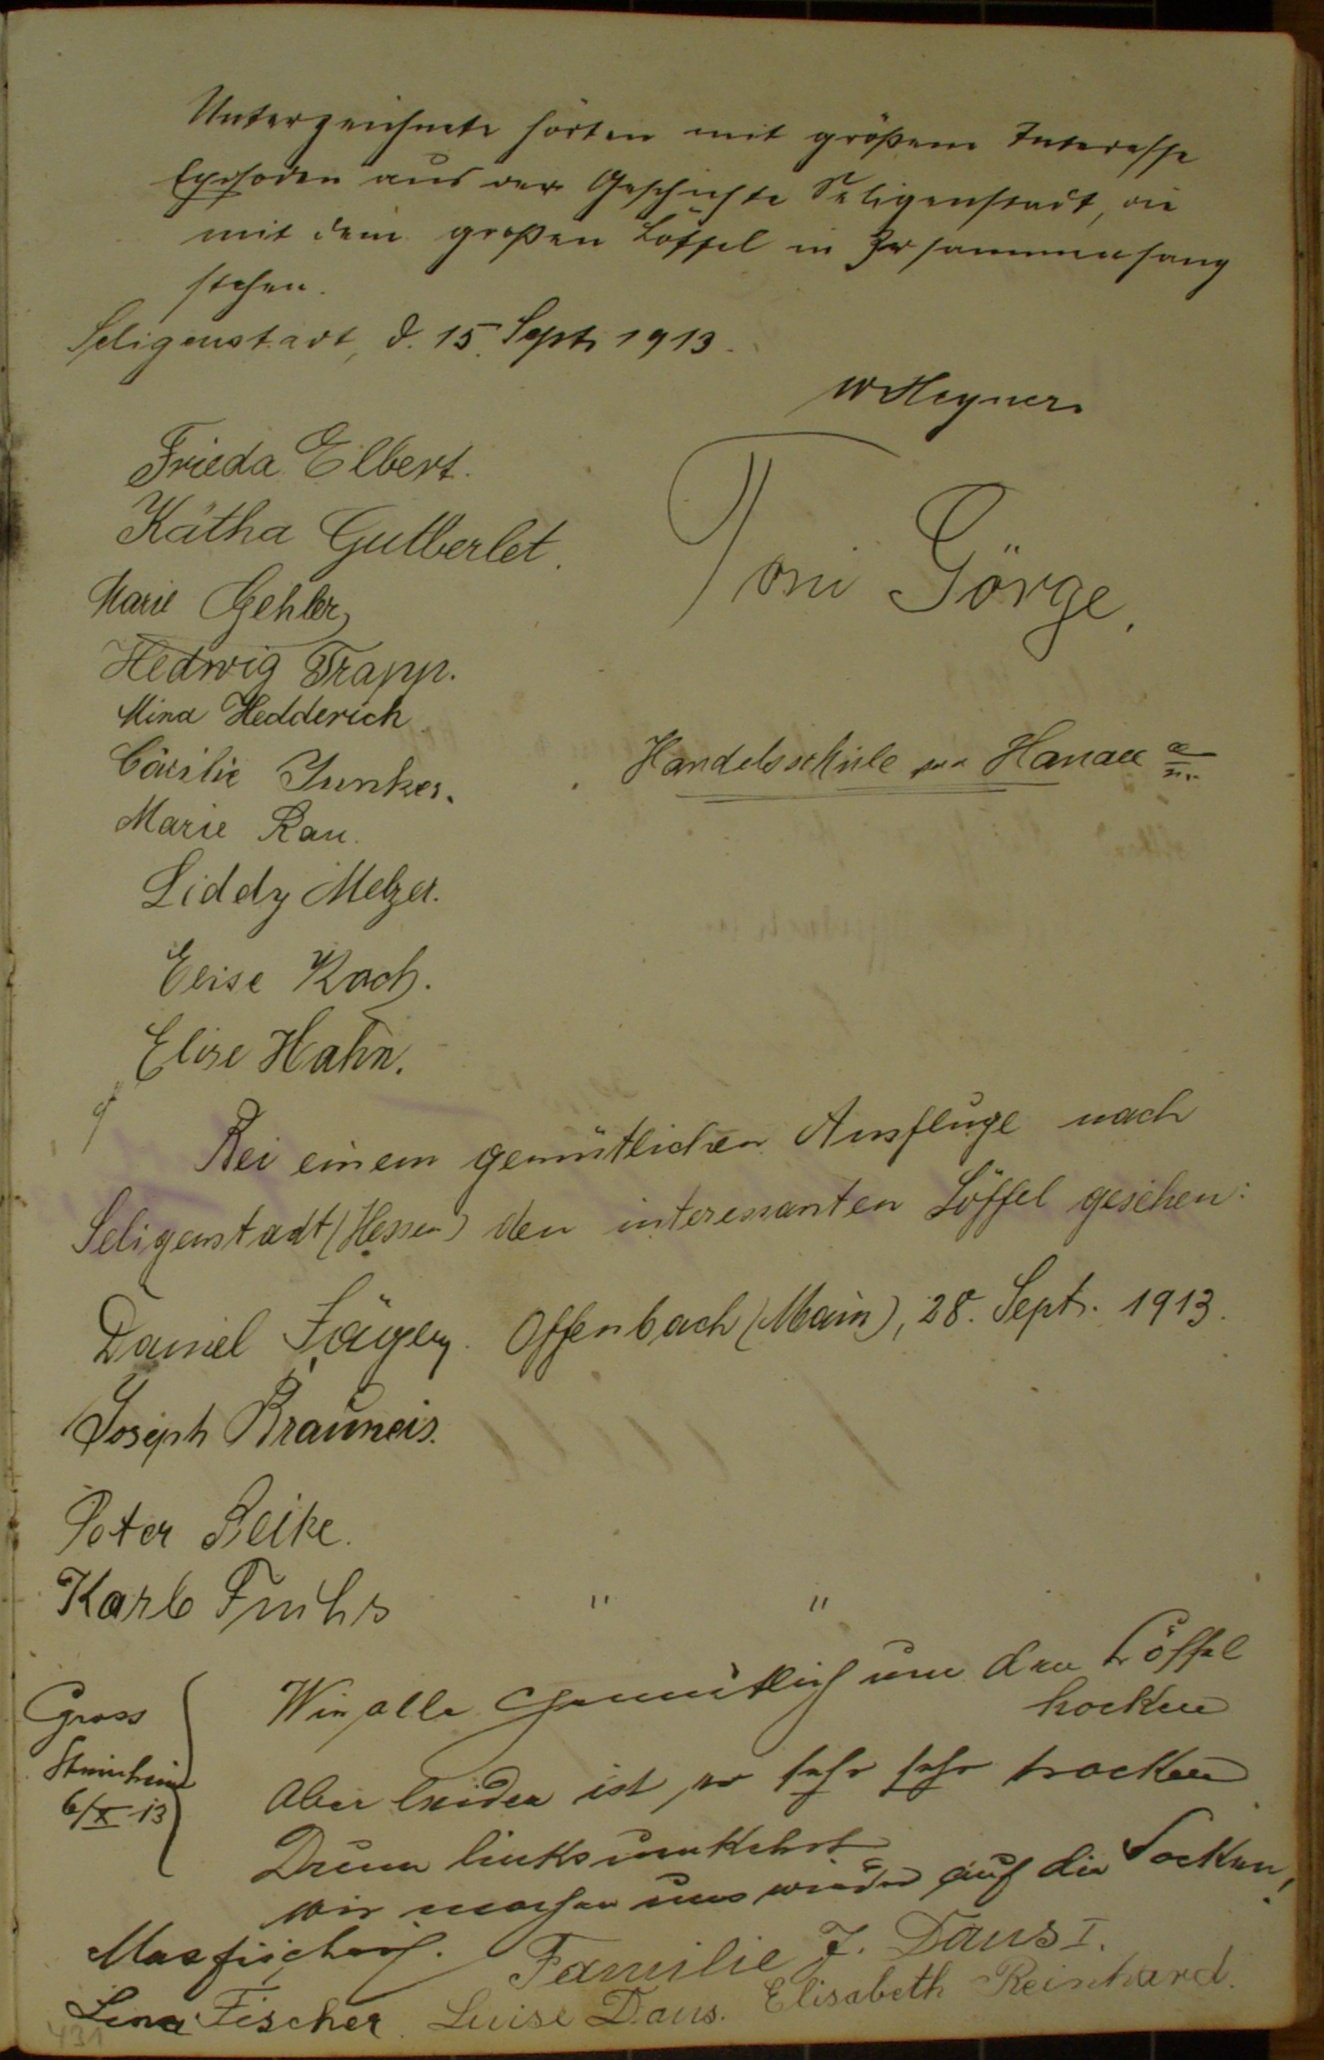 Unterzeichnete hörten mit größem Interesse
Episoden aus der Geschichte Seligenstadt, die
mit dem großen Löffel in Zusammenhang
stehen.
Seligenstadt, d. 15. Sept. 1913.
Frieda Elbert.
Kätha Gutberlet.
Marie Gehler
Toni Görge.
Hedwig Trapp.
Mina Hedderich
Cäcilie Junker.
Handelsschule Hanau a/M.
Marie Rau.
Liddy Melzer.
Elise Koch.
Elise Hahn.
Bei einem gemütlichen Ausfluge nach
Seligenstadt (Hessen) den interessanten Löffel gesehen:
Daniel Jäger. Offenbach (Main), 28. Sept. 1913.
Joseph Brauneis.
Peter Beike.
Karl Fuchs " "
Gross
Steinheim
6/X 13
Wir alle gemütlich um den Löffel
hocken
Aber leider ist er sehr sehr trocken
Drum links umkehrt
wir machen uns wieder auf die Socken,
Familie J. Daus I.
Lina Fischer. Luise Daus. Elisabeth Reinhard.
431